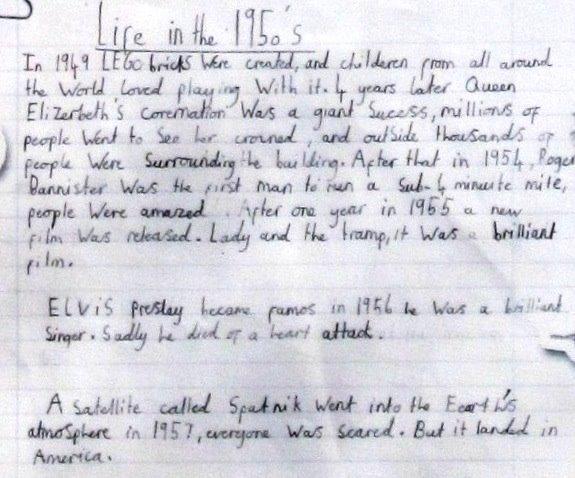 Life in the 1950's
In 1949 LEGO bricks Were created, and childeren from all around
the World Loved playing With it. 4 years later Queen
Elizerbeth's cormation Was a giant Sucess, millions of
people Went to See her crowned, and outside thousands of
people Were Surrounding the building. After that in 1954, Roger
Bannister Was the first man to run a Sub-4 minuite mile,
people Were amazed. After one year in 1955 a new
film Was released. Lady and the tramp, it Was a brilliant
film.
ELViS Presley became famos in 1956 he Was a brilliant
Singer. Sadly he died of a heart attack.
A Satellite called Sputnik Went into the Eearth's
atmosphere in 1957, everyone Was Scared. But it landed in
America.